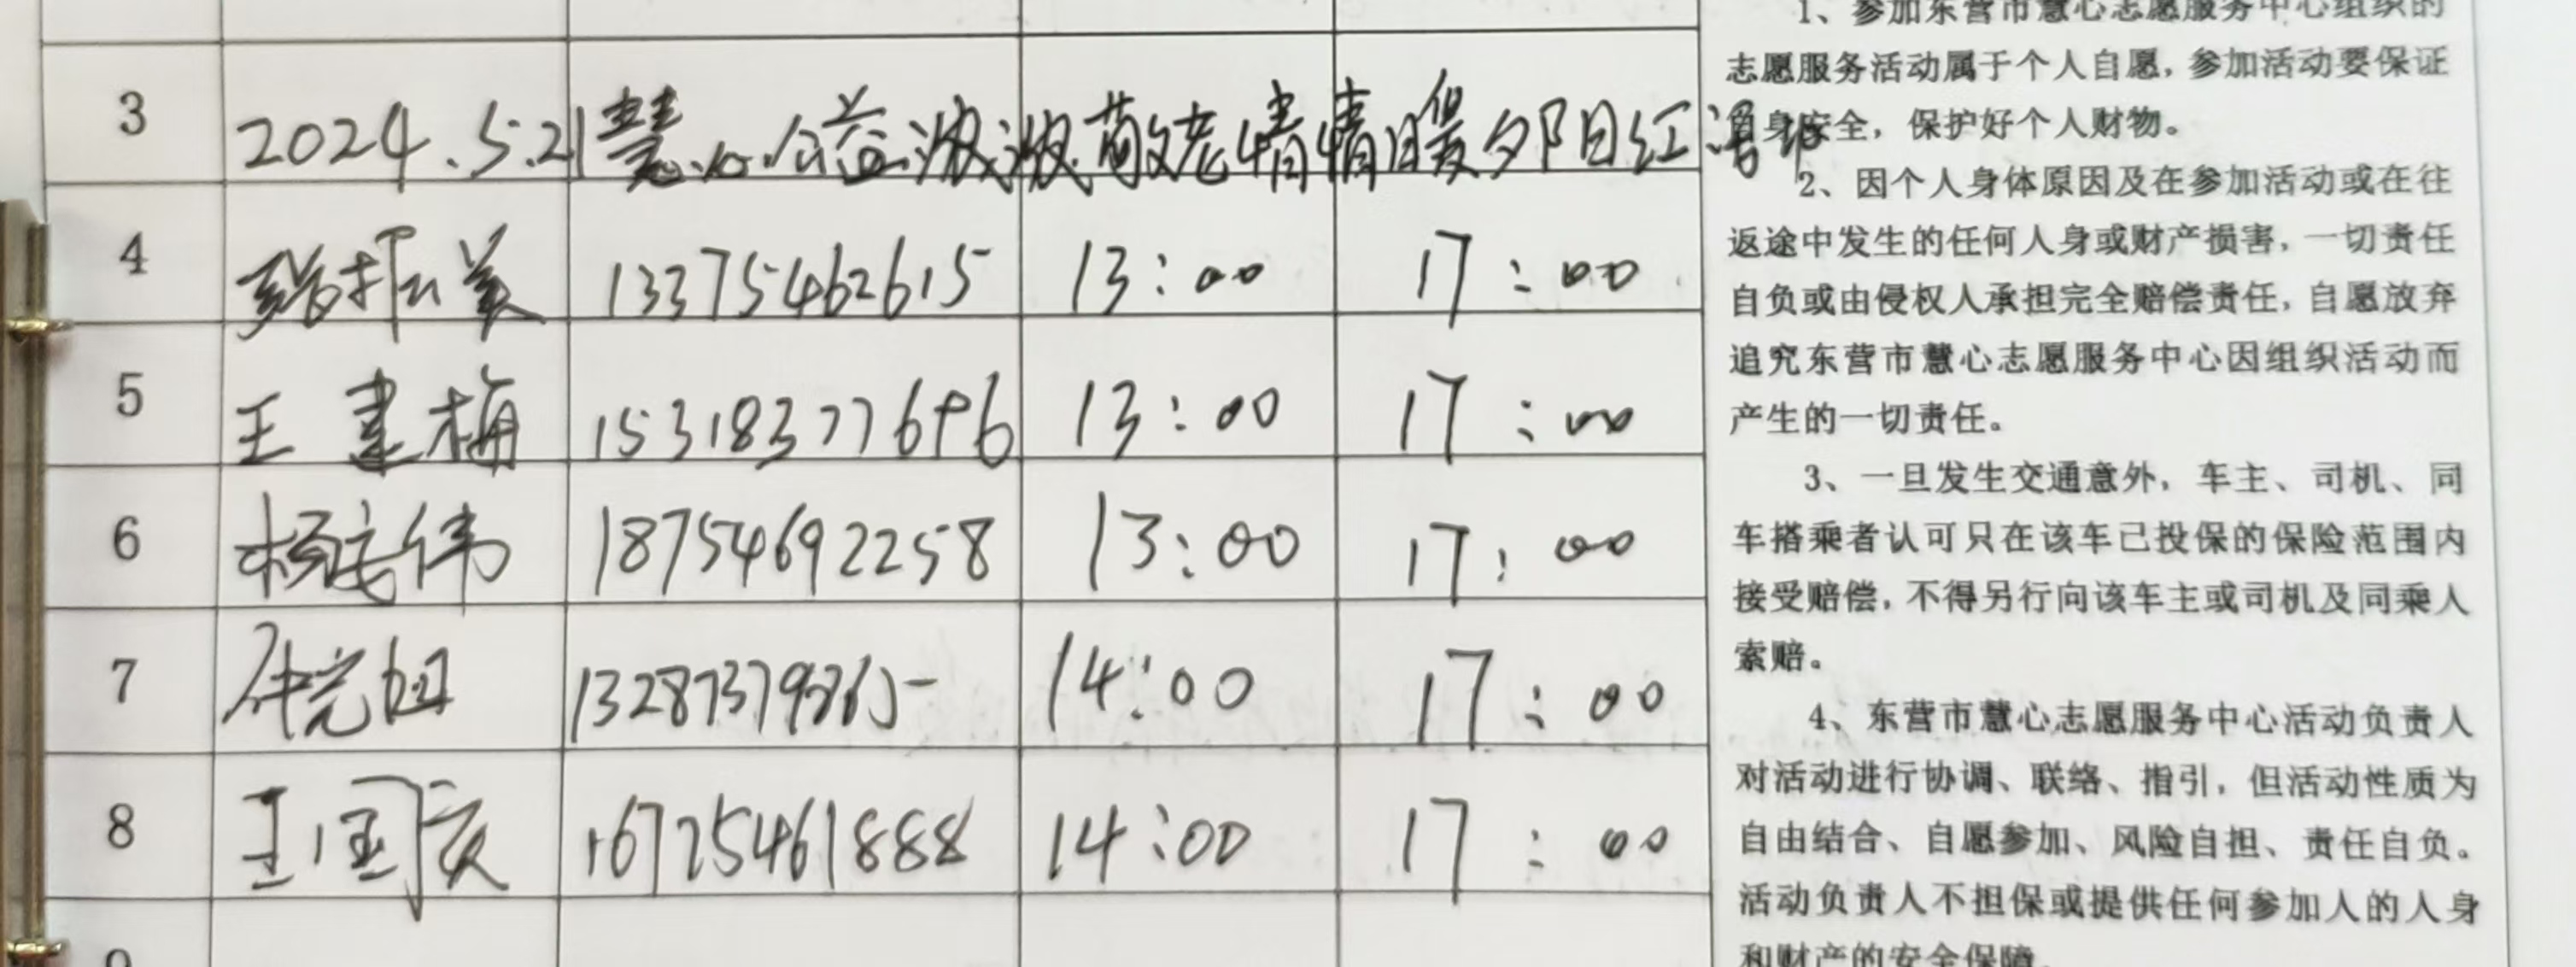 3 2024.5.21 慧心公益浓浓敬老情情暖夕阳红活动
4 13375462615 13:00 17:00
5 王建梅 15318377696 13:00 17:00
6 杨安伟 18754692258 13:00 17:00
7 14:00 17:00
8 王国庆 16725461888 14:00 17:00
9
1、参加东营市慧心志愿服务中心组织的
志愿服务活动属于个人自愿，参加活动要保证
自身安全，保护好个人财物。
2、因个人身体原因及在参加活动或在往
返途中发生的任何人身或财产损害，一切责任
自负或由侵权人承担完全赔偿责任，自愿放弃
追究东营市慧心志愿服务中心因组织活动而
产生的一切责任。
3、一旦发生交通意外，车主、司机、同
车搭乘者认可只在该车已投保的保险范围内
接受赔偿，不得另行向该车主或司机及同乘人
索赔。
4、东营市慧心志愿服务中心活动负责人
对活动进行协调、联络、指引，但活动性质为
自由结合、自愿参加、风险自担、责任自负。
活动负责人不担保或提供任何参加人的人身
和财产的安全保障。